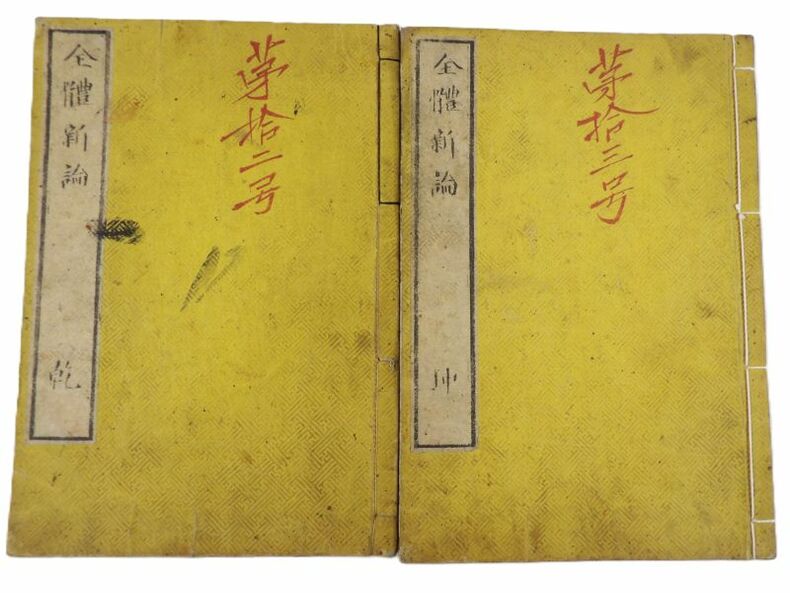 全體新論 乾
第拾二号
全體新論 坤
第拾三号